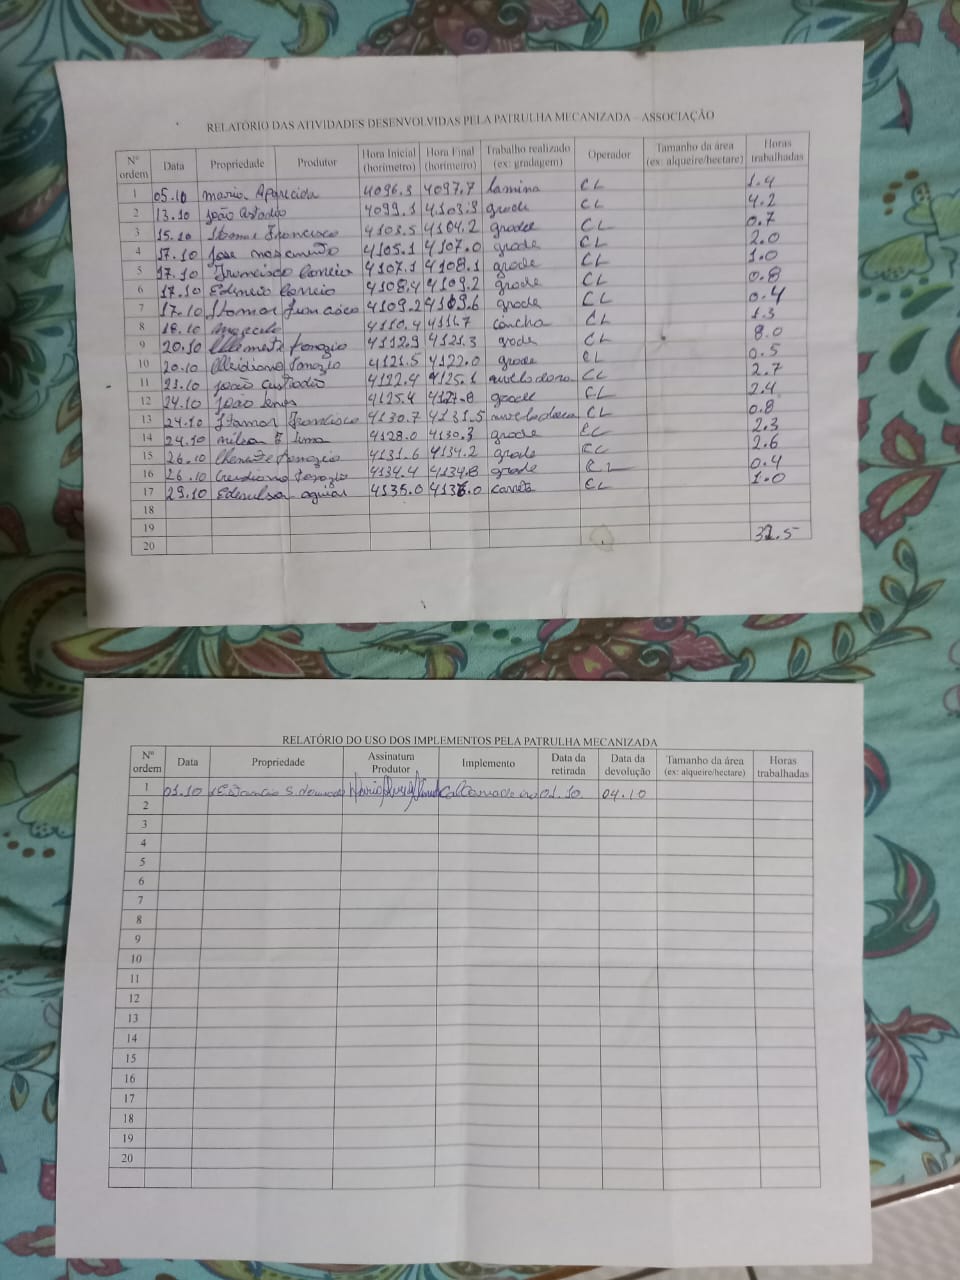 RELATÓRIO DAS ATIVIDADES DESENVOLVIDAS PELA PATRULHA MECANIZADA – ASSOCIAÇÃO
Nº ordem Data Propriedade Produtor Hora Inicial (horímetro) Hora Final (horímetro) Trabalho realizado (ex: gradagem) Operador Tamanho da área (ex: alqueire/hectare) Horas trabalhadas
1 05.10 maria Aparecida 4096.3 4097.7 lamina CL 1.4
2 13.10 João 4099.1 4103.3 grade CL 4.2
3 15.10 Itamar Francisco 4103.5 4104.2 grade CL 0.7
4 17.10 Jose nascimento 4105.1 4107.0 grade CL 2.0
5 17.10 Francisco Correia 4107.1 4108.1 grade CL 1.0
6 17.10 Correia 4108.4 4109.2 grade CL 0.8
7 17.10 Itamar francisco 4109.2 4109.6 grade CL 0.4
8 18.10 4110.4 4111.7 concha CL 1.3
9 20.10 4112.9 4121.3 CL 8.0
10 20.10 4121.5 4122.0 grade CL 0.5
11 23.10 João custodio 4122.4 4125.1 CL 2.7
12 24.10 João 4125.4 4127.8 grade CL 2.4
13 24.10 Itamar Francisco 4130.7 4131.5 CL 0.8
14 24.10 milson lima 4128.0 4130.3 grade CL 2.3
15 26.10 4131.6 4134.2 grade CL 2.6
16 26.10 4134.4 4134.8 grade CL 0.4
17 29.10 Edenilson aguiar 4135.0 4136.0 carreta CL 1.0
18
19
20 32.5
RELATÓRIO DO USO DOS IMPLEMENTOS PELA PATRULHA MECANIZADA
Nº ordem Data Propriedade Assinatura Produtor Implemento Data da retirada Data da devolução Tamanho da área (ex: alqueire/hectare) Horas trabalhadas
1 01.10 01.10 04.10
2
3
4
5
6
7
8
9
10
11
12
13
14
15
16
17
18
19
20